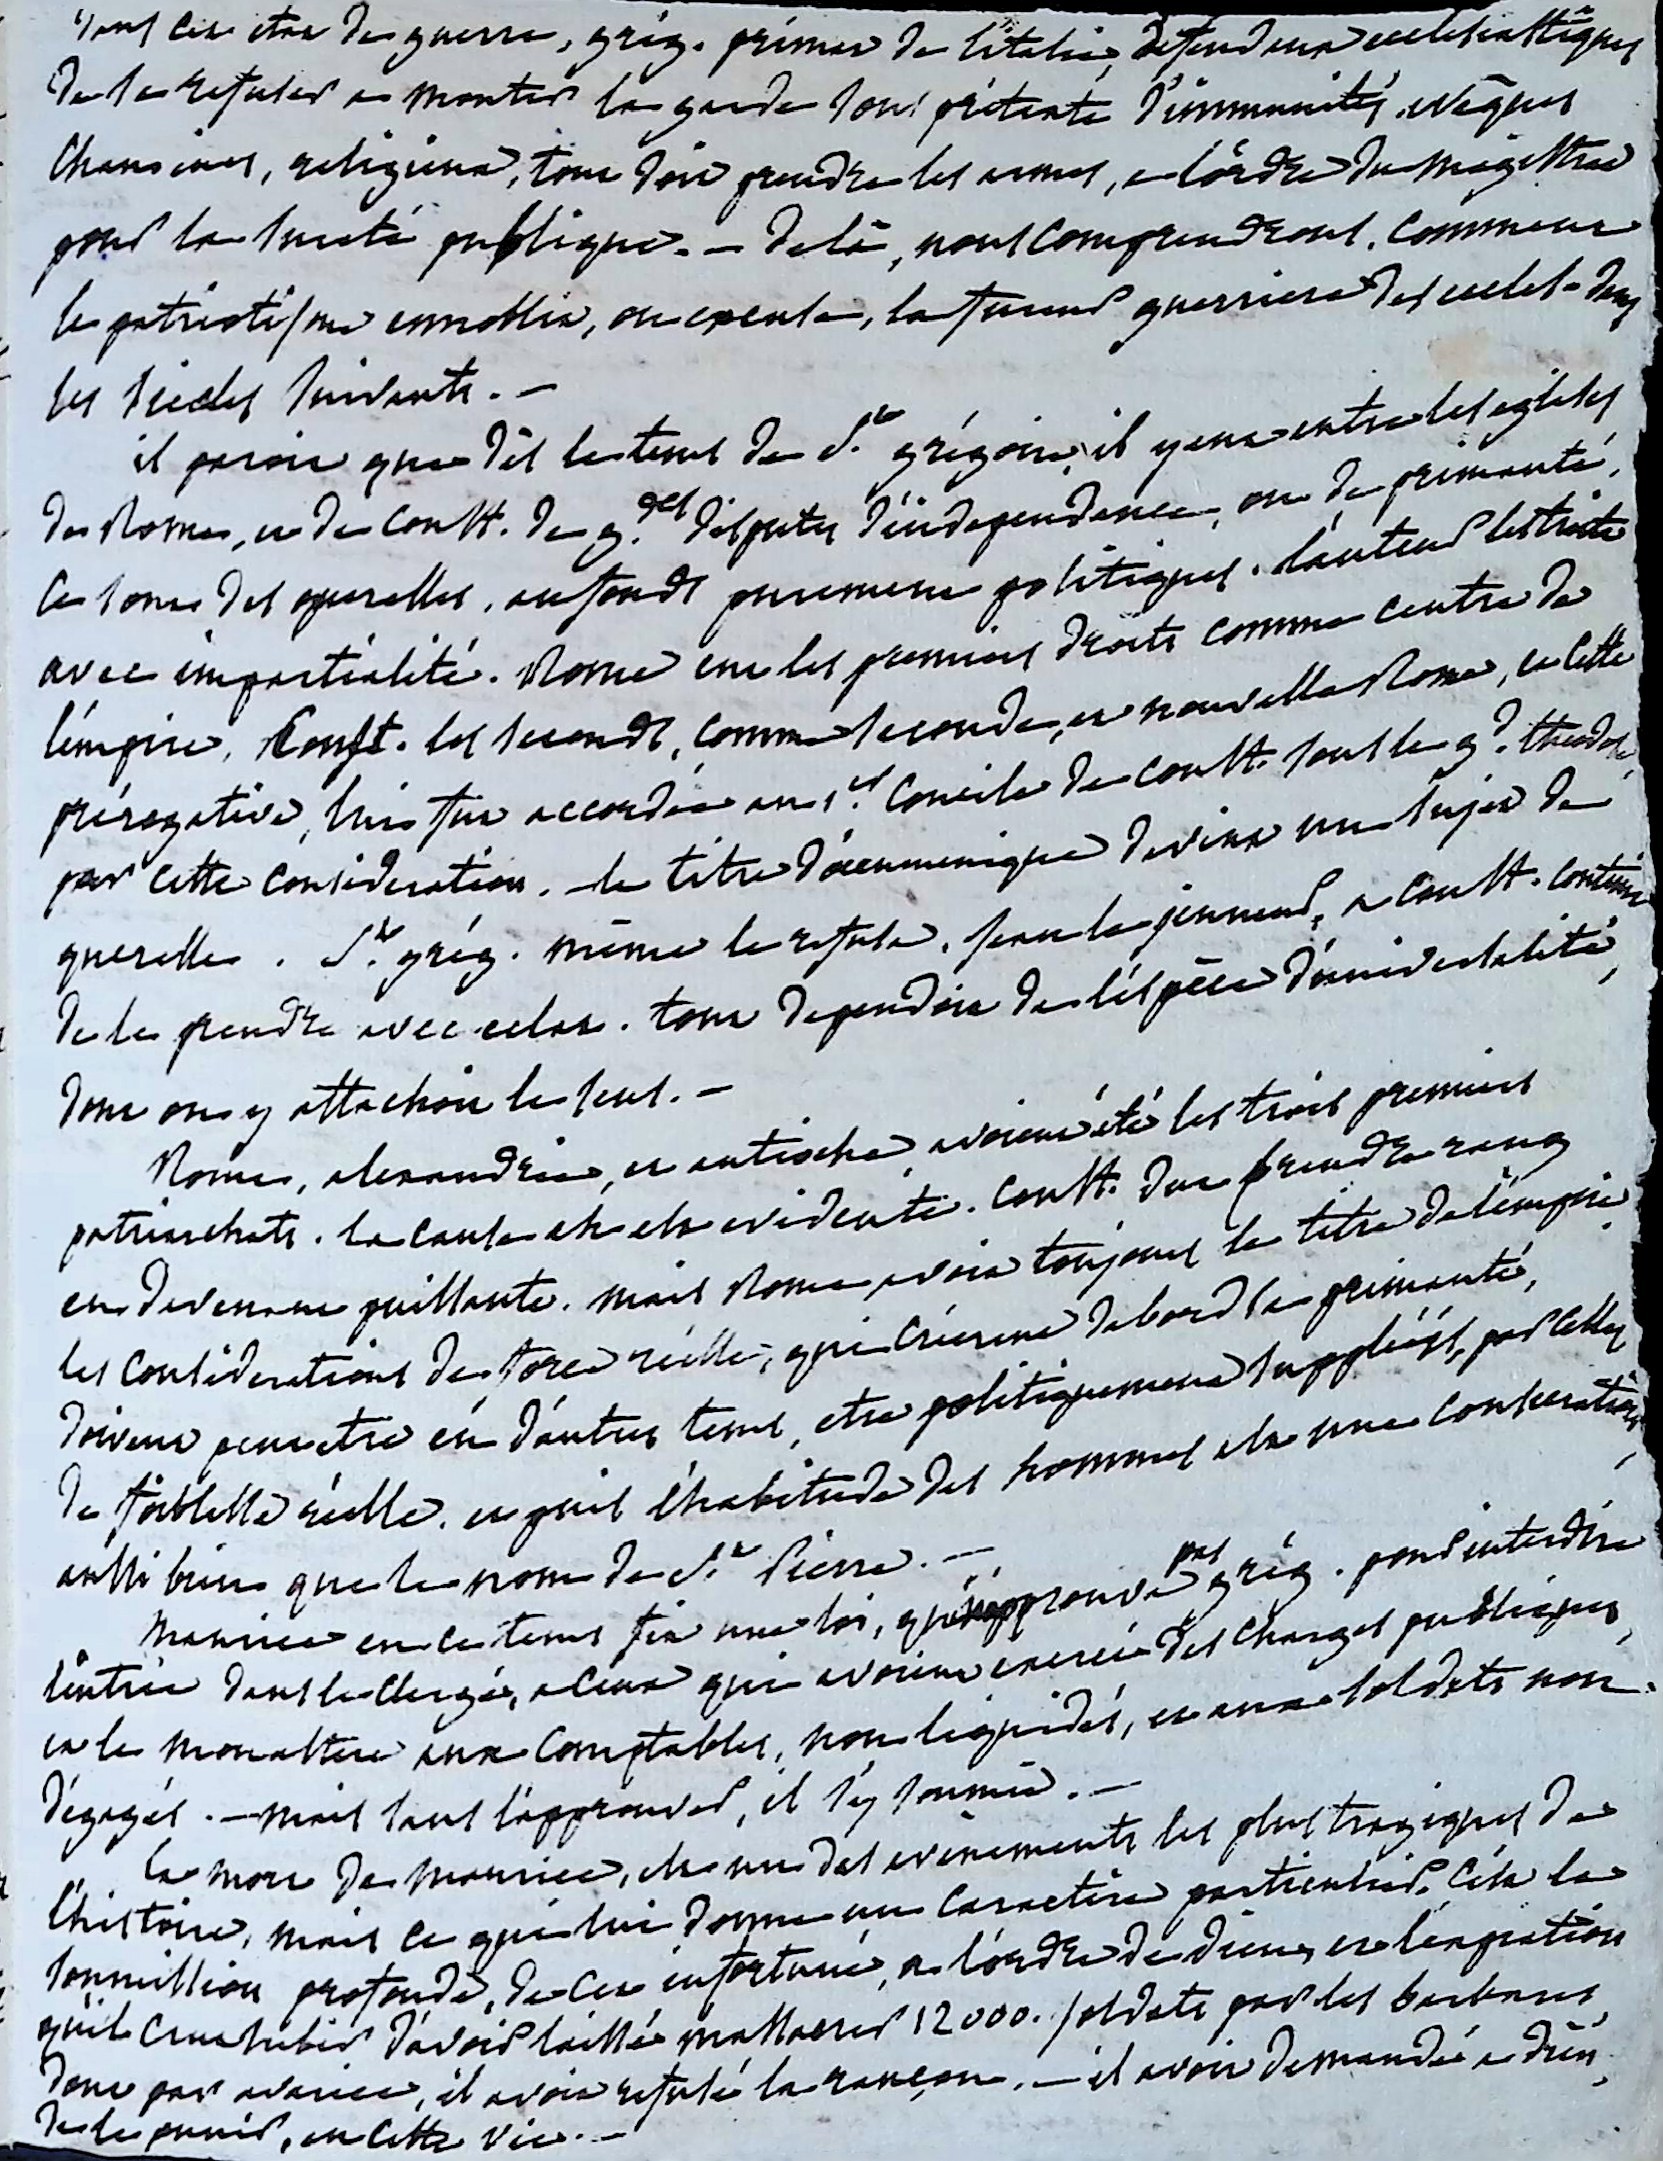 dans cet etat de guerre, grég. primat de l'italie, défend aux ecclésiastiques
de se refuser a monter la garde sous prétexte d'immunités. evêques
chanoines, religieux, tout doit prendre les armes, a l'ordre du magistrat
pour la sureté publique. – delà, nous comprendrons, comment
le patriotisme ennoblit, ou excusa, la fureur guerriere des eccles. dans
les siecles suivants. –
il paroit que dès le tems de St. grégoire, il y eut entre les eglises
de Rome, et de Constt. de gdes disputes d'independance, ou de primauté,
ce sont des querelles, au fonds purement politiques. l'auteur les traite
avec impartialité. Rome eut les premiers droits comme centre de
l'empire, Const. les seconds, comme seconde, et nouvelle Rome, et cette
prérogative, lui fut accordée au 1er. Concile de Constt. sous le gd. theodose,
par cette consideration. – le titre d'oecumenique devint un sujet de
querelle. St. grég. même le refusa. Jean le jeuneur, a Constt. continua
de le prendre avec eclat. tout dependoit de l'éspèce d'universalité,
dont on y attachoit le sens. –
Rome, alexandrie, et antioche, avoient été les trois premiers
patriarchats. la cause en est evidente. Constt. dut prendre rang
en devenant puissante. mais Rome avoit toujours le titre de l'empire.
les considerations de force réelle, qui créerent dabord sa primauté,
doivent peut etre en d'autres tems, etre politiquement suppléés, par celles
de foiblesse réelle. et puis l'habitude des hommes est une consecration,
aussi bien que le nom de St. Pierre. –
Maurice en ce tems fit une loi, qu'approuva pas grég. pour interdire
l'entrée dans le clergé, a ceux qui avoient exercé des charges publiques,
et le monastere aux comptables, non liquidés, et aux soldats non
dégagés. – mais sans l'approuver, il s'y soumit. –
la mort de maurice, est un des evénements les plus tragiques de
l'histoire, mais ce qui lui donne un caractère particulier, c'est la
soumission profonde, de cet infortuné, a l'ordre de dieu, et l'expiation
qu'il crut subir d'avoir laissé massacrer 12000. soldats par les barbares,
dont par avarice, il avoit refusé la rançon. – il avoit demandé a dieu,
de le punir, en cette vie. –